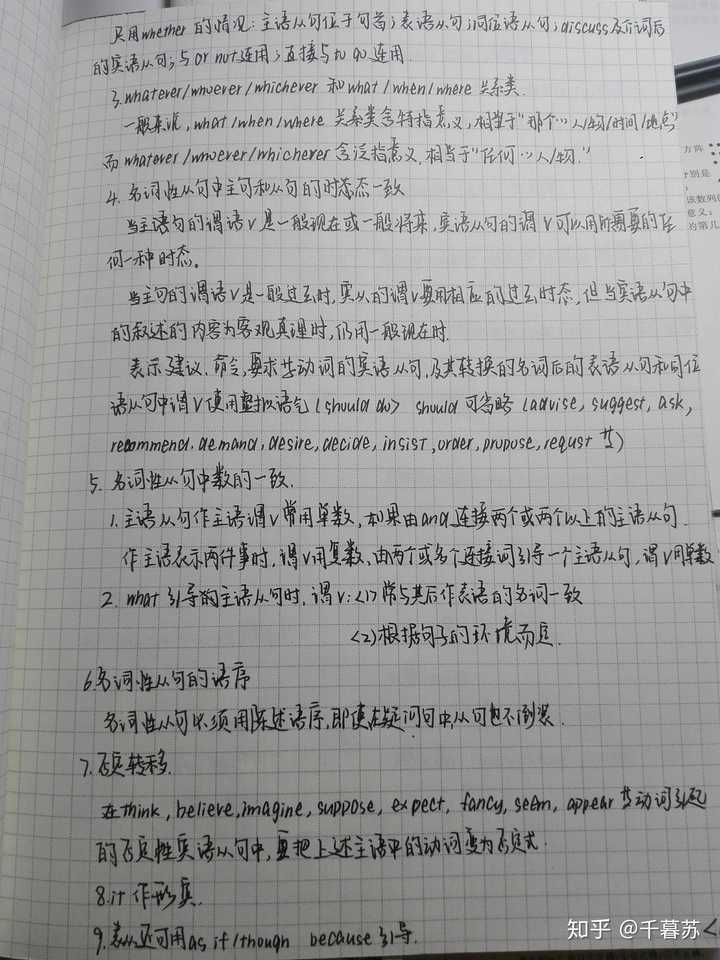 只用whether的情况：主语从句位于句首；表语从句；同位语从句；discuss及介词后
的宾语从句；与or not连用；直接与to do连用
3.whatever/whoever/whichever 和what/when/where 关系类.
一般来说，what/when/where 关系类含特指意义，相当于"那个…人/物/时间/地点"
而whatever/whoever/whichever 含泛指意义.相当于"任何…人/物."
4.名词性从句中主句和从句的时态一致
当主语句的谓语v是一般现在或一般将来，宾语从句的谓v可以用所需要的任
何一种时态。
当主句的谓语v是一般过去时，宾从的谓v要用相应的过去时态，但当宾语从句中
的叙述的内容为客观真理时，仍用一般现在时.
表示建议.命令.要求等动词的宾语从句，及其转换的名词后的表语从句和同位
语从句中谓v使用虚拟语气(should do) should可省略(advise, suggest, ask,
recommend.demand,desire,decide,insist,order,propose,requst等)
5.名词性从句中数的一致.
1.主语从句作主语谓v常用单数，如果由and连接两个或两个以上的主语从句.
作主语表示两件事时，谓v用复数、由两个或多个连接词引导一个主语从句，谓v用单数
2.what引导的主语从句时.谓v:<1>常与其后作表语的名词一致
<2>根据句子的环境而定.
6.名词性从句的语序
名词性从句必须用陈述语序.即使在疑问句中,从句也不倒装.
7.否定转移.
在think,believe,imagine,suppose,expect,fancy,seem,appear等动词引起
的否定性宾语从句中，要把上述主语中的动词变为否定式.
8.it作形宾.
9.表从还可用as if/though because引导.
方阵
分别是
该数列
意义；
为第几
知乎 @千暮苏